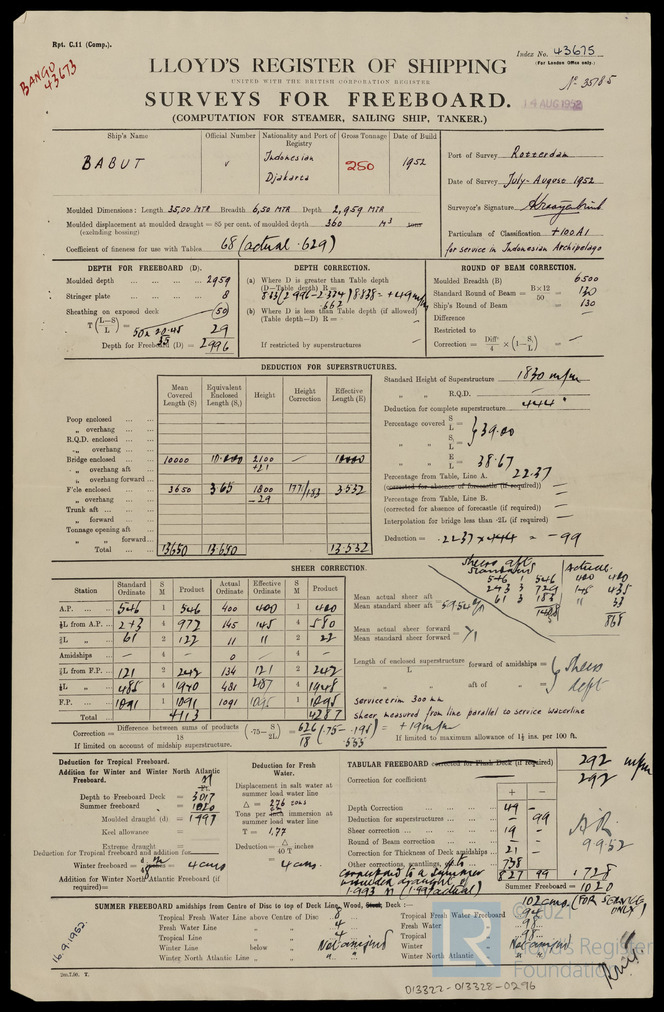 Rpt. C.11 (Comp.).
Index No. 43675
(For London Office only.)
BANGO
43673
LLOYD'S REGISTER OF SHIPPING
No 35785
UNITED WITH THE BRITISH CORPORATION REGISTER
14 AUG 1952
SURVEYS FOR FREEBOARD.
(COMPUTATION FOR STEAMER, SAILING SHIP, TANKER.)
Ship's Name Official Number Nationality and Port of Registry Gross Tonnage Date of Build
BABUT Indonesian Djakarta 250 1952
Port of Survey Rotterdam
Date of Survey July-August 1952
Surveyor's Signature
Particulars of Classification +100A1
for service in Indonesian Archipelago
Moulded Dimensions: Length 35,00 MTR Breadth 6,50 MTR Depth 2,959 MTR
Moulded displacement at moulded draught = 85 per cent. of moulded depth 360 M3 tons
(excluding bossing)
Coefficient of fineness for use with Tables 68 (actual .629)
DEPTH FOR FREEBOARD (D).
Moulded depth 2959
Stringer plate 8
Sheathing on exposed deck (50)
T (L-S / L) = 29
Depth for Freeboard (D) = 2996
DEPTH CORRECTION.
(a) Where D is greater than Table depth
(D-Table depth) R =
(b) Where D is less than Table depth (if allowed)
(Table depth-D) R =
If restricted by superstructures
ROUND OF BEAM CORRECTION.
Moulded Breadth (B) 6500
Standard Round of Beam = B×12 / 50 = 130
Ship's Round of Beam = 130
Difference
Restricted to
Correction = Diff' / 4 × (1 - S₁ / L) = —
DEDUCTION FOR SUPERSTRUCTURES.
Mean Covered Length (S) Equivalent Enclosed Length (S₁) Height Height Correction Effective Length (E)
Poop enclosed
„ overhang
R.Q.D. enclosed
„ overhang
Bridge enclosed 10000 10.000 2100 — 10000
„ overhang aft +21
„ overhang forward
F'cle enclosed 3650 3.65 1800 3.532
„ overhang -29
Trunk aft
„ forward
Tonnage opening aft
„ „ forward
Total 13650 13.650 13.532
Standard Height of Superstructure 1830 m/m
„ „ R.Q.D. —
Deduction for complete superstructure 444
Percentage covered S / L =
„ „ S₁ / L = 39.00
„ „ E / L = 38.67
Percentage from Table, Line A. 22.37
(corrected for absence of forecastle (if required))
Percentage from Table, Line B. —
(corrected for absence of forecastle (if required))
Interpolation for bridge less than ·2L (if required) —
Deduction = .2237 × 444 = -99
SHEER CORRECTION.
Station Standard Ordinate S M Product Actual Ordinate Effective Ordinate S M Product
A.P. 546 1 546 400 400 1 400
⅙L from A.P. 243 4 972 145 145 4 580
⅓L „ 61 2 122 11 11 2 22
Amidships — 4 — 0 — 4 —
⅓L from F.P. 121 2 242 134 121 2 242
⅙L „ 485 4 1940 481 487 4 1948
F.P. 1091 1 1091 1091 1095 1 1095
Total 4113 4287
sheers aft
standard Actual
546 1 546 400 400
243 3 729 145 435
61 3 183 11 33
1458 868
Mean actual sheer aft
Mean standard sheer aft =
Mean actual sheer forward
Mean standard sheer forward = >1
Length of enclosed superstructure forward of amidships =
L „ aft of „ =
service trim 300 mm
sheer measured from line parallel to service waterline
Correction = Difference between sums of products / 18 (·75 - S / 2L) = 626 / 18 (.75 - .195) = +19 m/m
If limited on account of midship superstructure.
If limited to maximum allowance of 1½ ins. per 100 ft.
Deduction for Tropical Freeboard.
Addition for Winter and Winter North Atlantic Freeboard.
Depth to Freeboard Deck = 3017
Summer freeboard = 1020
Moulded draught (d) = 1997
Keel allowance =
Extreme draught =
Deduction for Tropical freeboard and addition for
Winter freeboard = 4 cms
Addition for Winter North Atlantic Freeboard (if required) =
Deduction for Fresh Water.
Displacement in salt water at summer load water line
Δ = 276 tons
Tons per cm immersion at summer load water line
T = 1.77
Deduction = Δ / 40 T inches
= 4 cms.
TABULAR FREEBOARD corrected for Flush Deck (if required) 292 m/m
Correction for coefficient 292
+ -
Depth Correction 49 —
Deduction for superstructures — 99
Sheer correction 19 —
Round of Beam correction — —
Correction for Thickness of Deck amidships 21 —
Other corrections, scantlings, etc. 738
827 99 + 728
Summer Freeboard = 1020
corresponds to a summer
moulded draught of
AR
9952
SUMMER FREEBOARD amidships from Centre of Disc to top of Deck Line, Wood, Steel, Deck :— 102 cms. (FOR SERVICE ONLY)
Tropical Fresh Water Line above Centre of Disc 8
Fresh Water Line „ „ 4
Tropical Line „ „ 4
Winter Line below „ „ Not assigned
Winter North Atlantic Line „ „ „ „
Tropical Fresh Water Freeboard 94
Fresh Water „ 98
Tropical „ 98
Winter „ Not assigned
Winter North Atlantic „ „ „
16.9.1952.
200.7.50. T.
© 2021
Lloyd's Register
Foundation
013322-013328-0296